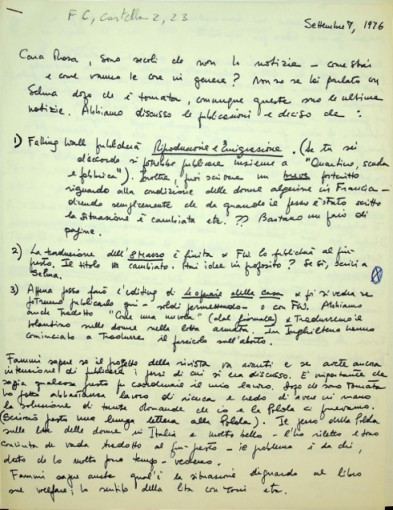 F C, Cartella 2, 23
Settembre 7, 1976
Cara Rosa, sono secoli che non ho notizie - come stai
e come vanno le cose in genere? Non so se hai parlato con
Selma dopo che è tornata, comunque queste sono le ultime
notizie. Abbiamo discusso le pubblicazioni e deciso che:
1) Falling Wall pubblicherà Riproduzione e Emigrazione. (Se tu sei
d'accordo si potrebbe pubblicare insieme a "Quartiere, scuola
e fabbrica"). Inoltre puoi scrivere un poscritto
riguardo alla condizione delle donne algerine in Francia -
dicendo semplicemente che da quando il pezzo è stato scritto
la situazione è cambiata etc. ?? Bastano un paio di
pagine.
2) La traduzione dell' 8 Marzo è finita e FW lo pubblicherà al più
presto. Il titolo va cambiato. Hai idee in proposito? Se sì, scrivi a
Selma.
3) Appena posso farò l'editing di Le operaie della casa e poi si vedrà se
potremo pubblicarlo qui - soldi permettendo - o con FW. Abbiamo
anche tradotto "Come una nuvola" (dal giornale) e tradurremo il
volantino sulle donne nella lotta armata. In Inghilterra hanno
cominciato a tradurre il fascicolo sull'aborto.
Fammi sapere se il progetto della rivista va avanti e se avete ancora
intenzione di pubblicare i pezzi di cui si era discusso. È importante che
sappia qualcosa presto per coordinare il mio lavoro. Dopo che sono tornata
ho fatto abbastanza lavoro di ricerca e credo di avere in mano
la soluzione di tante domande che io e la Polda ci ponevamo.
(Scriverò presto una lunga lettera alla Polda). Il pezzo della Polda
sulle lotte delle donne in Italia è molto bello - l'ho riletto e sono
convinta che vada tradotto al più presto - il problema è da chi,
dato che ho molto poco tempo - vedremo.
Fammi sapere anche qual'è la situazione riguardo al libro
sul welfare; ho sentito della lite con Toni etc.